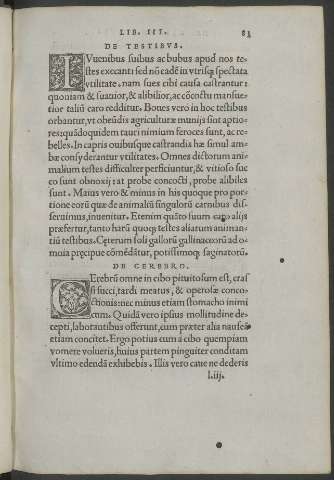 LIB. III. 83
DE TESTIBVS.
IVuenibus suibus ac bubus apud nos te-
stes execanť: sed nō eadē in vtrisq; spectata
vtilitate. nam sues cibi causa castrantur:
quoniam & suauior, & alibilior, ac cōcoctu mansue-
tior taliū caro redditur. Boues vero in hoc testibus
orbantur, vt obeūdis agriculturæ munijs sint aptio-
res: quādoquidem tauri nimium feroces sunt, ac re-
belles. In capris ouibusque castrandis hæ simul am-
bæ consyderantur vtilitates. Omnes dictorum ani-
malium testes difficulter perficiuntur, & vitioso suc
co sunt obnoxij: at probe concocti, probe alibiles
sunt. Maius vero & minus in his quoque pro por-
tione eorū quæ de animaliū singulorū carnibus dis-
seruimus, inuenitur. Etenim quāto suum caro alijs
præfertur, tanto harū quoq; testes aliarum animan-
tiū testibus. Cęterum soli gallorū gallinaceorū ad o-
mnia pręcipue cōmēdātur, potissimōq; saginatorū.
DE CEREBRO.
CErebrū omne in cibo pituitosum est, cras
si succi, tardi meatus, & operosæ conco-
ctionis: nec minus etiam stomacho inimi
cum. Quidā vero ipsius mollitudine de-
cepti, laborantibus offerunt, cum præter alia nauseā
etiam concitet. Ergo potius cum a cibo quempiam
vomere volueris, huius partem pinguiter conditam
vltimo edendā exhibebis. Illis vero caue ne dederis
l.iij.